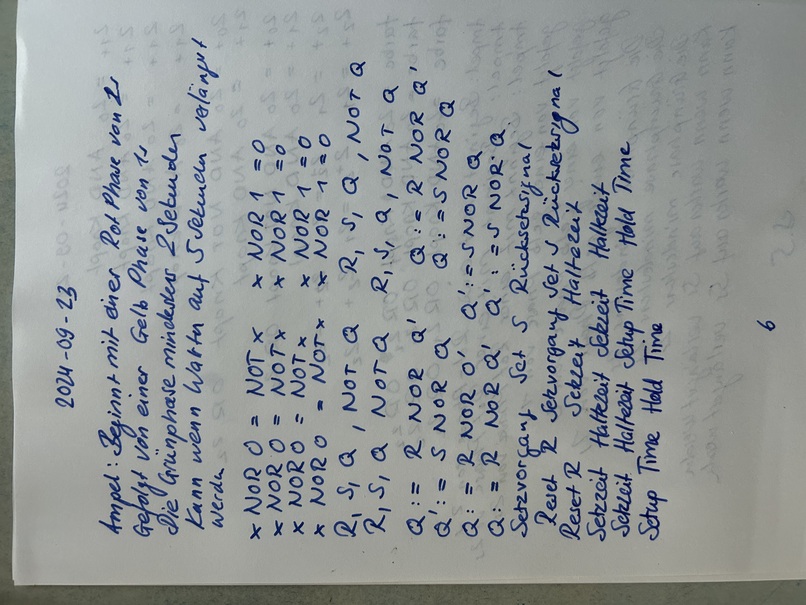 2024-09-23
Ampel: Beginnt mit einer Rot Phase von 2s
Gefolgt von einer Gelb Phase von 1s
Die Grünphase mindestens 2 Sekunden
Kann wenn Warten auf 5 Sekunden verlängert
werden
x NOR 0 = NOT x x NOR 1 = 0
x NOR 0 = NOT x x NOR 1 = 0
x NOR 0 = NOT x x NOR 1 = 0
x NOR 0 = NOT x x NOR 1 = 0
R, S, Q , NOT Q R, S, Q , NOT Q
R, S, Q NOT Q R, S, Q , NOT Q
Q := R NOR Q' Q := R NOR Q'
Q' := S NOR Q Q := S NOR Q
Q := R NOR Q' Q' := S NOR Q
Q := R NOR Q' Q' := S NOR Q
Setzvorgang Set S Rücksetsignal
Reset R Setzvorgang Set S Rücksetsignal
Reset R Setzeit Haltezeit
Setzzeit Haltezeit Setzeit Haltezeit
Setzeit Haltezeit Setup Time Hold Time
Setup Time Hold Time
6